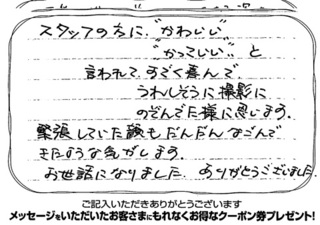 スタッフの方に"かわいい"
"かっこいい"と
言われて、すごく喜んで、
うれしそうに撮影に
のぞんでた様に思います。
緊張していた顔もだんだんなごんで
きたような気がします。
お世話になりました。ありがとうございました。
ご記入いただきありがとうございます
メッセージをいただいたお客さまにもれなくお得なクーポン券プレゼント!